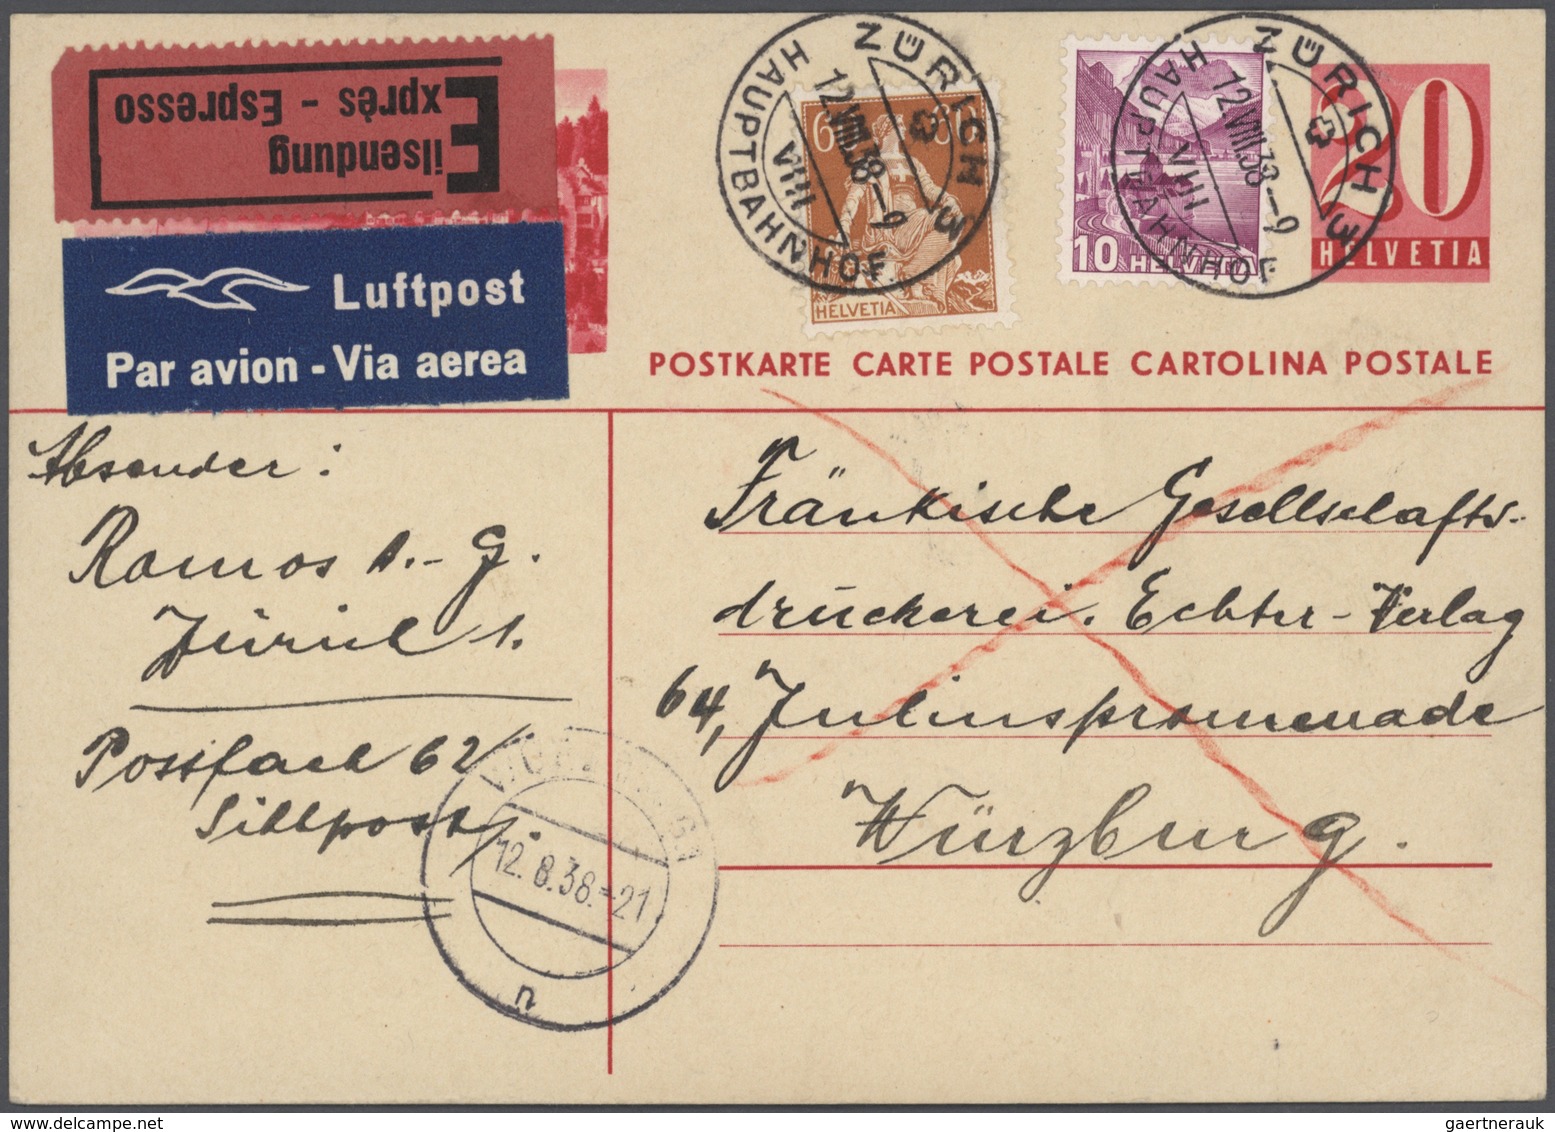 Eilsendung
Exprès - Espresso
Luftpost
Par avion - Via aerea
ZÜRICH 3
12.VIII.38-9
VIII
HAUPTBAHNHOF.
HELVETIA
ZÜRICH 3
12.VIII.38-9
VIII
HAUPTBAHNHOF
10 HELVETIA
20
HELVETIA
POSTKARTE CARTE POSTALE CARTOLINA POSTALE
Absender:
Ramos A.-G.
Zürich 1.
Postfach 62
Sihlpost.
WÜRZBURG
12.8.38.-21
n
Fränkische Gesellschafts-
druckerei. Echter-Verlag
64, Juliuspromenade
Würzburg.
gaertnerauk@delcampe.net